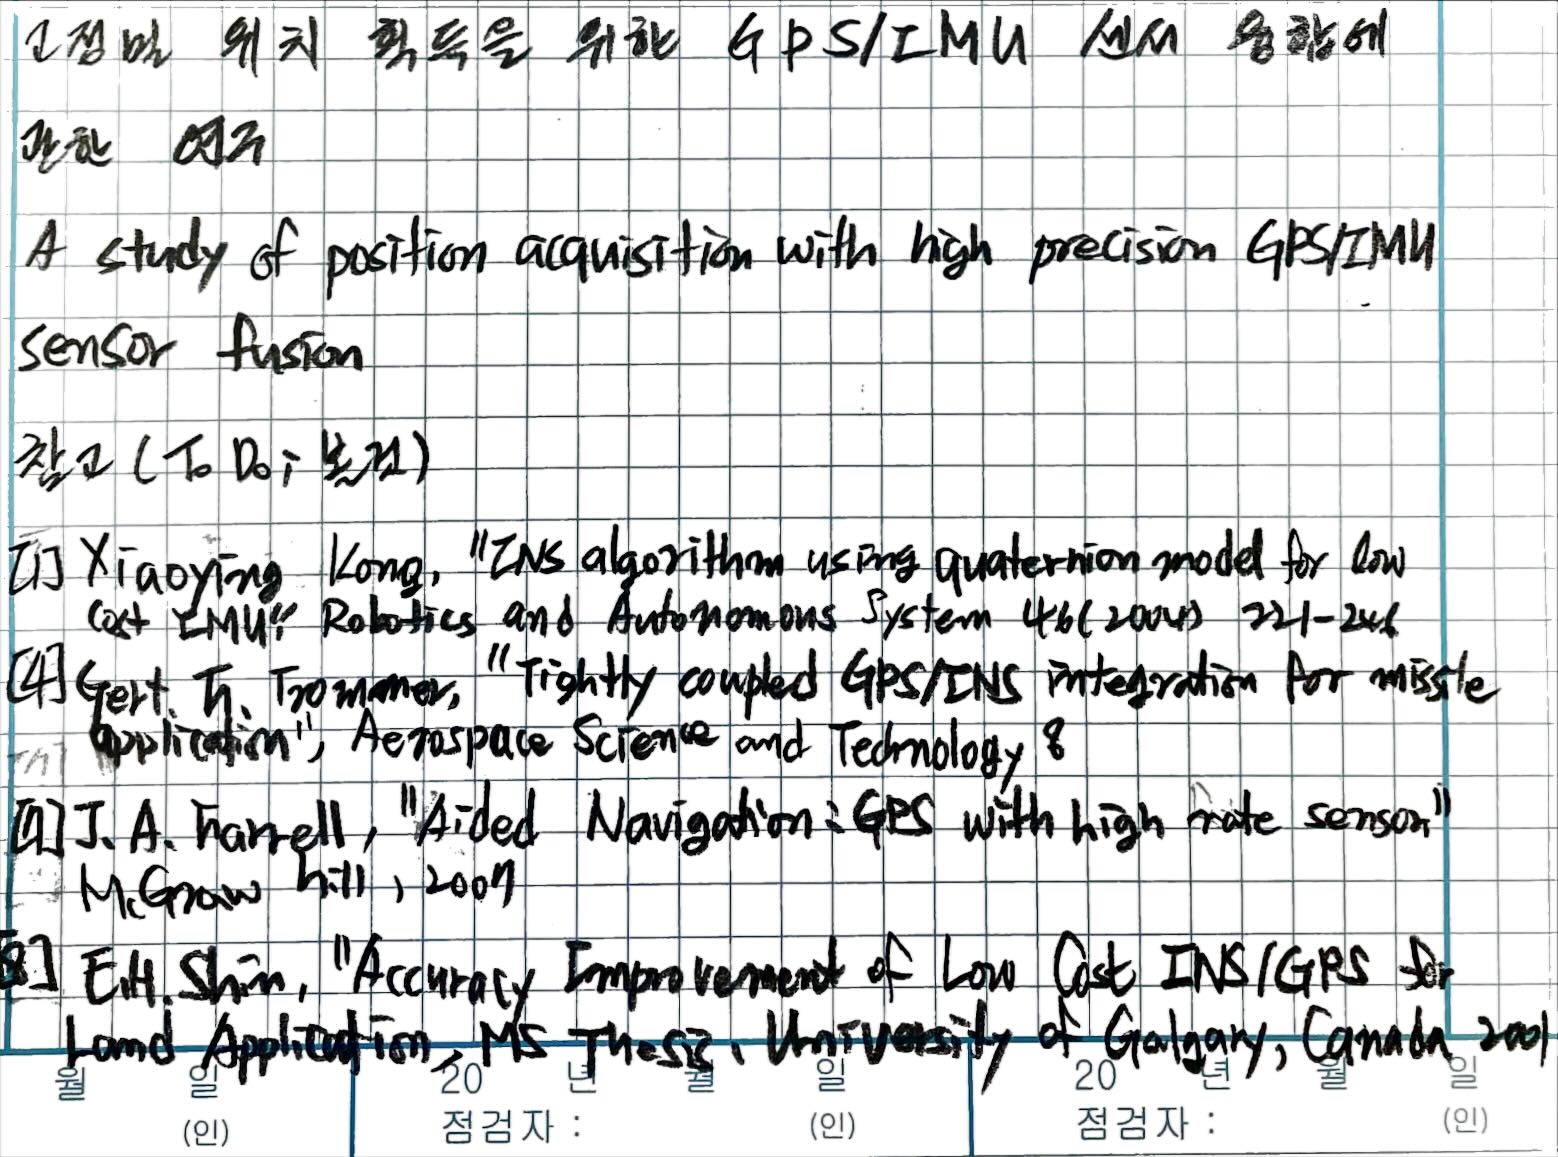 고정밀 위치 획득을 위한 GPS/IMU 센서 융합에
관한 연구
A study of position acquisition with high precision GPS/IMU
sensor fusion
참고 (To Do ; 본전)
[1] Xiaoying Kong, "INS algorithm using quaternion model for low
cost IMU", Robotics and Autonomous System 46(2004) 221-246
[4] Gert. Tr. Trommer, "Tightly coupled GPS/INS integration for missile
application", Aerospace Science and Technology 8
[7] J. A. Farrell, "Aided Navigation : GPS with high rate sensor"
McGraw hill, 2007
[8] E.H. Shin, "Accuracy Improvement of Low Cost INS/GPS for
Land Application, MS Thesis, University of Galgary, Canada 2001
월 일 20 년 월 일 20 년 월 일
(인) 점검자 : (인) 점검자 : (인)